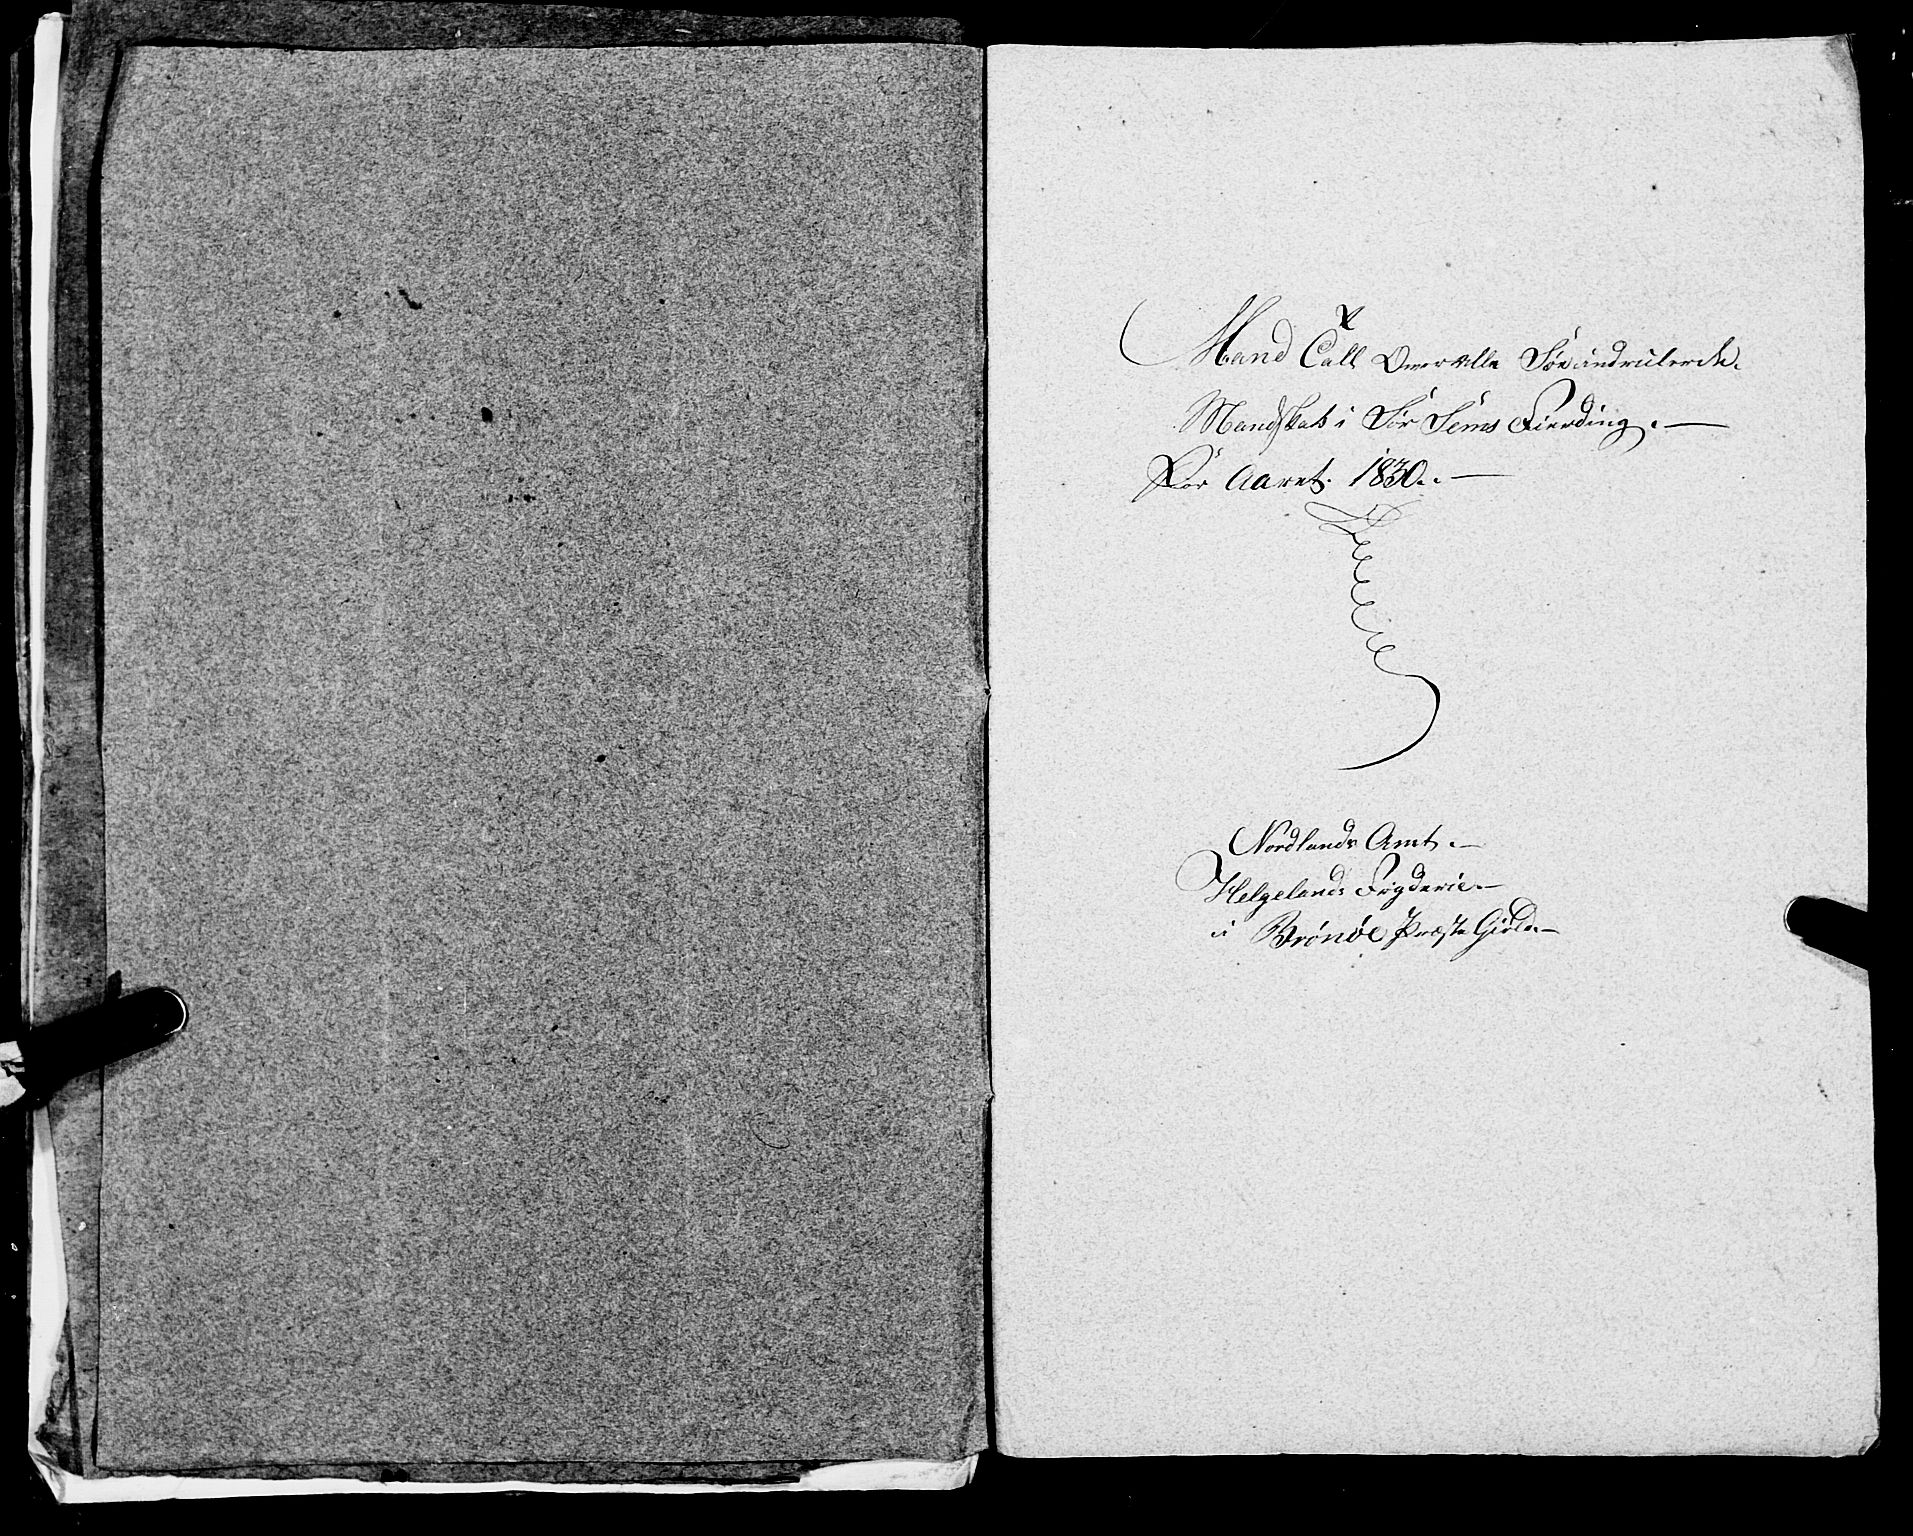 Mand Tall Over alle Søe indrulerede
Mandskab i Sør Sems Fierding. —
For Aaret. 1830.. —
Nordlands Amt. —
Helgelands Fogderie. —
i Brønøe Præste Gield. —